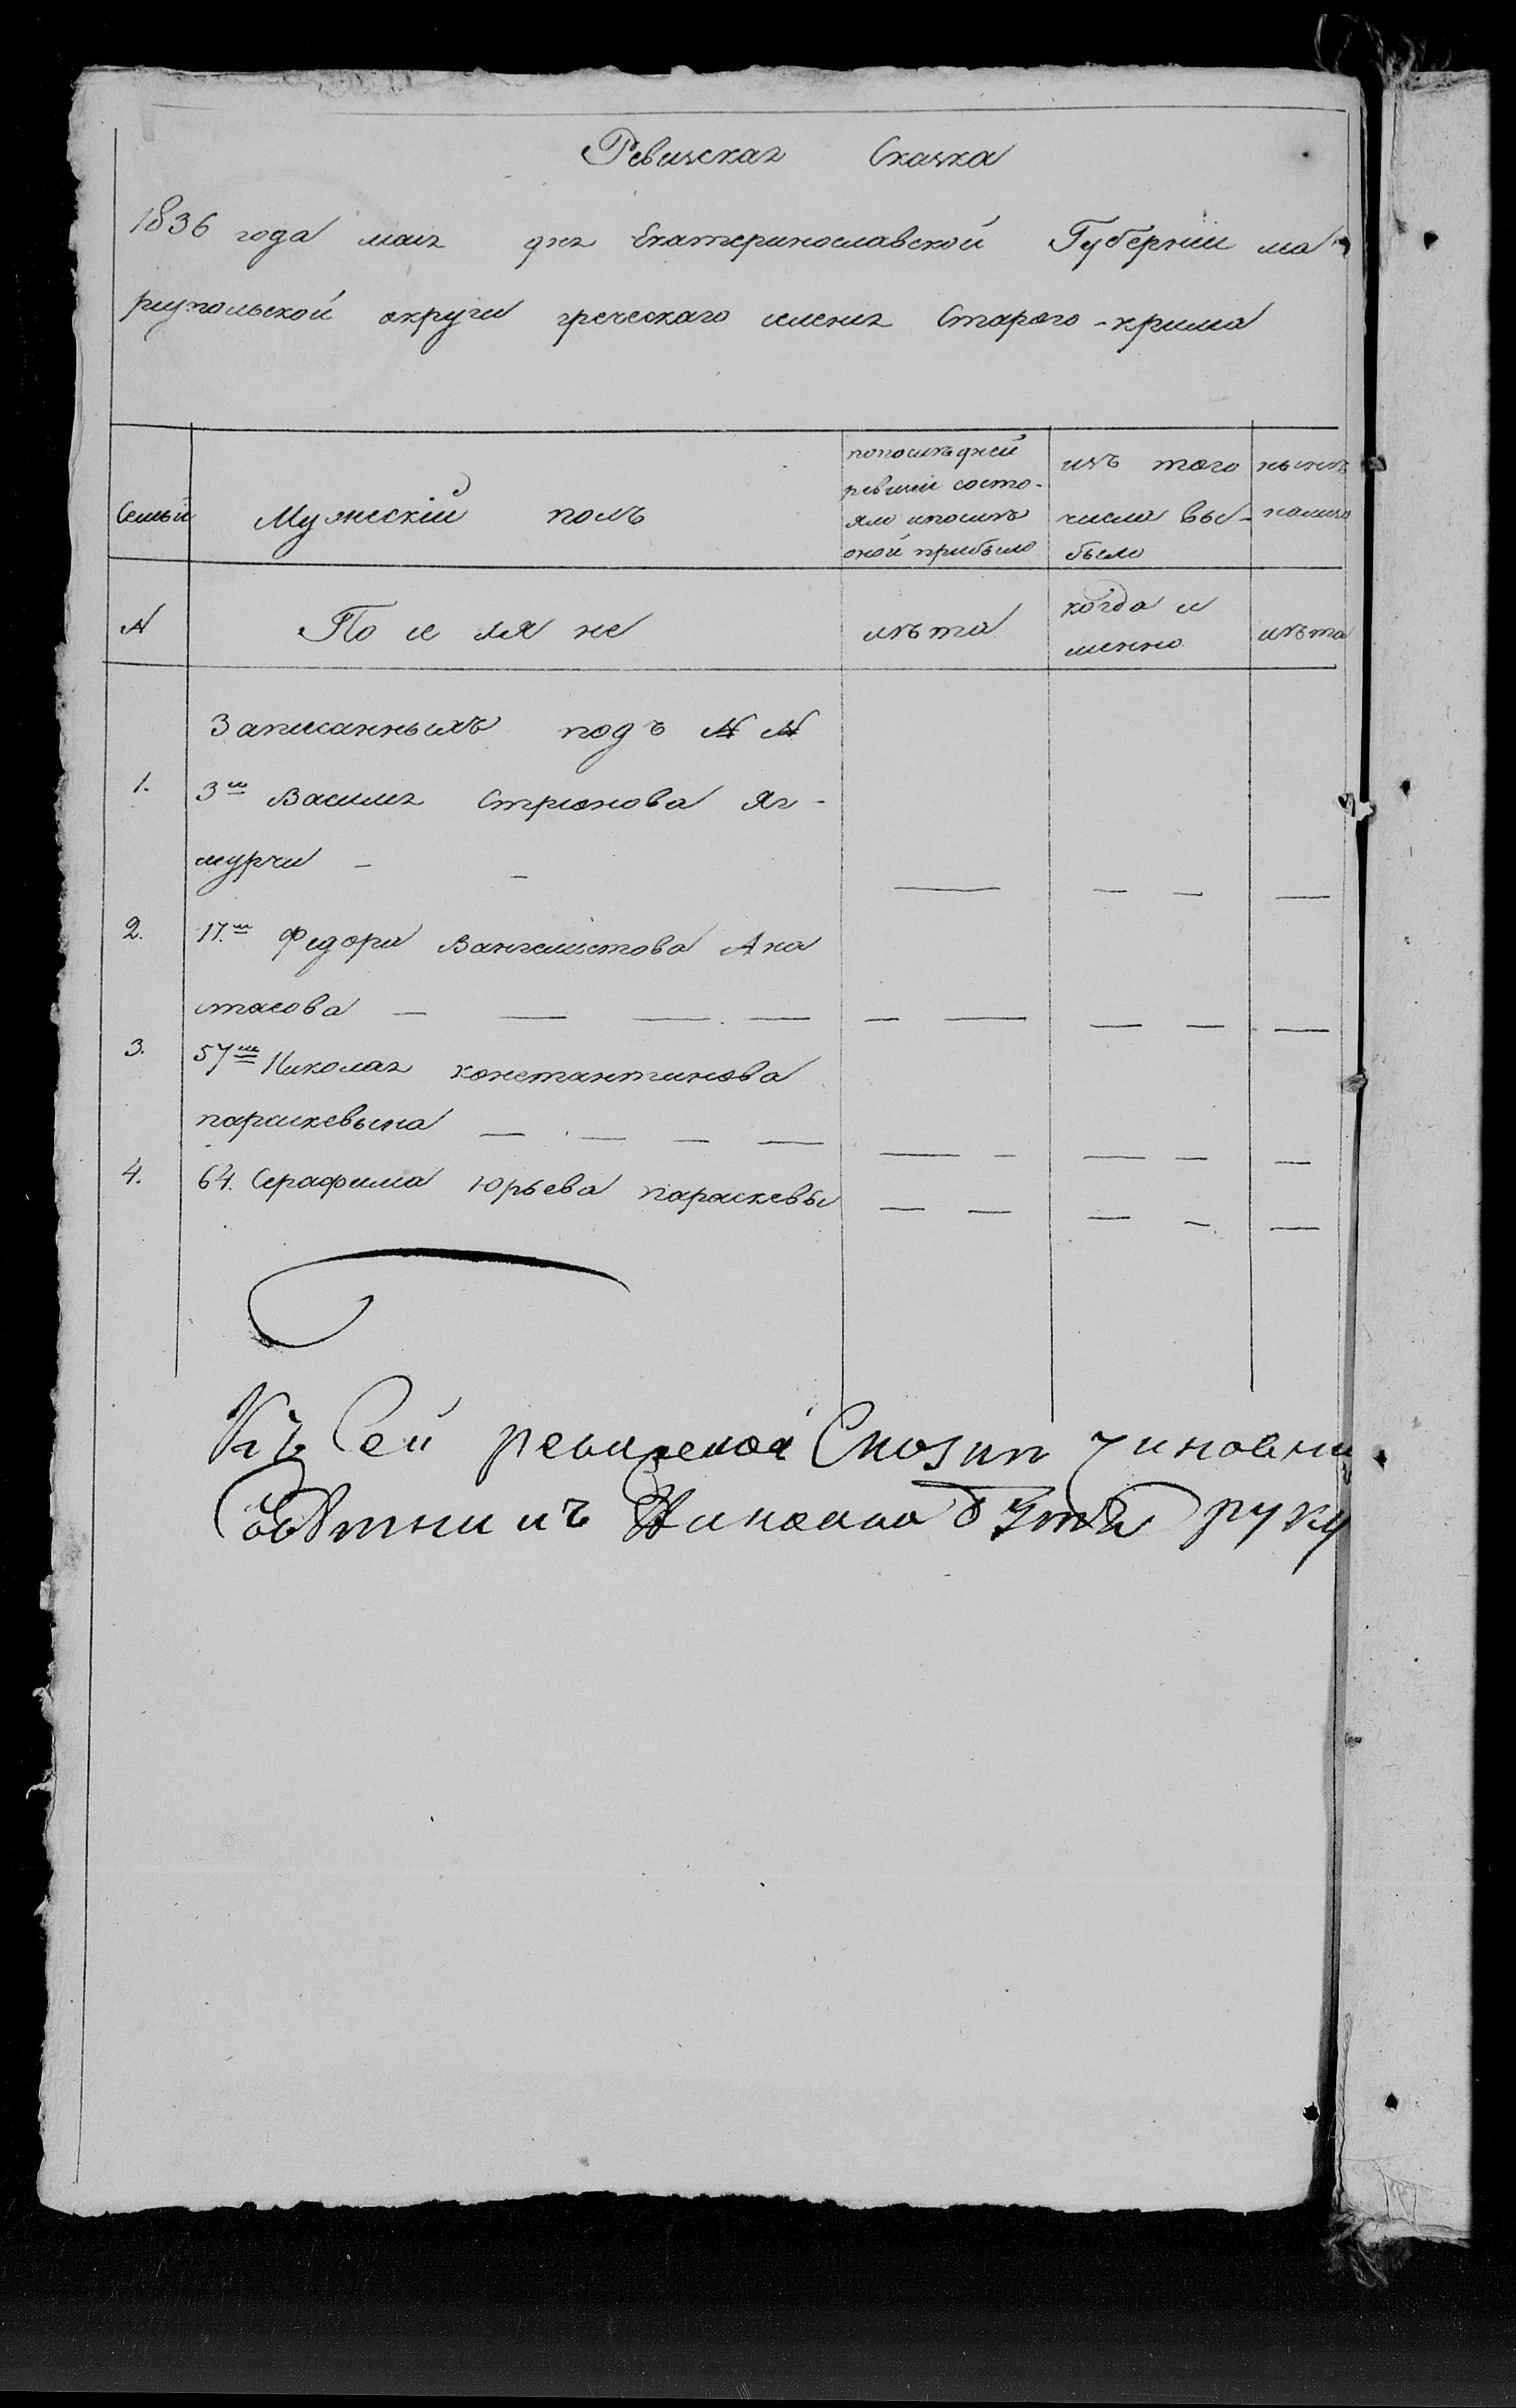 Ревизская Сказка
1836 года мая дня Екатеринославской Губернии ма-
риупольской округи греческаго селения Старого-крима
Семьи
Мужескій полъ
попослѣдней
ревизіи состо-
яло ипослѣ
оной прибыло
изъ того
числа вы-
было
нынѣ
налицо
№
Поселяне
лѣта
когда и
менно
лѣта
Записанныхъ подъ №№
1. 3м Василия Стрионова Яг-
мурчи — —
2. 17.м Федора Вангелистова Ана
стасова — — — —
3. 57м Николая константинова
параскевина — — — —
4. 64. Серафима Юрьева параскевы
Къ Сей ревизской Сказки чиновни
руку